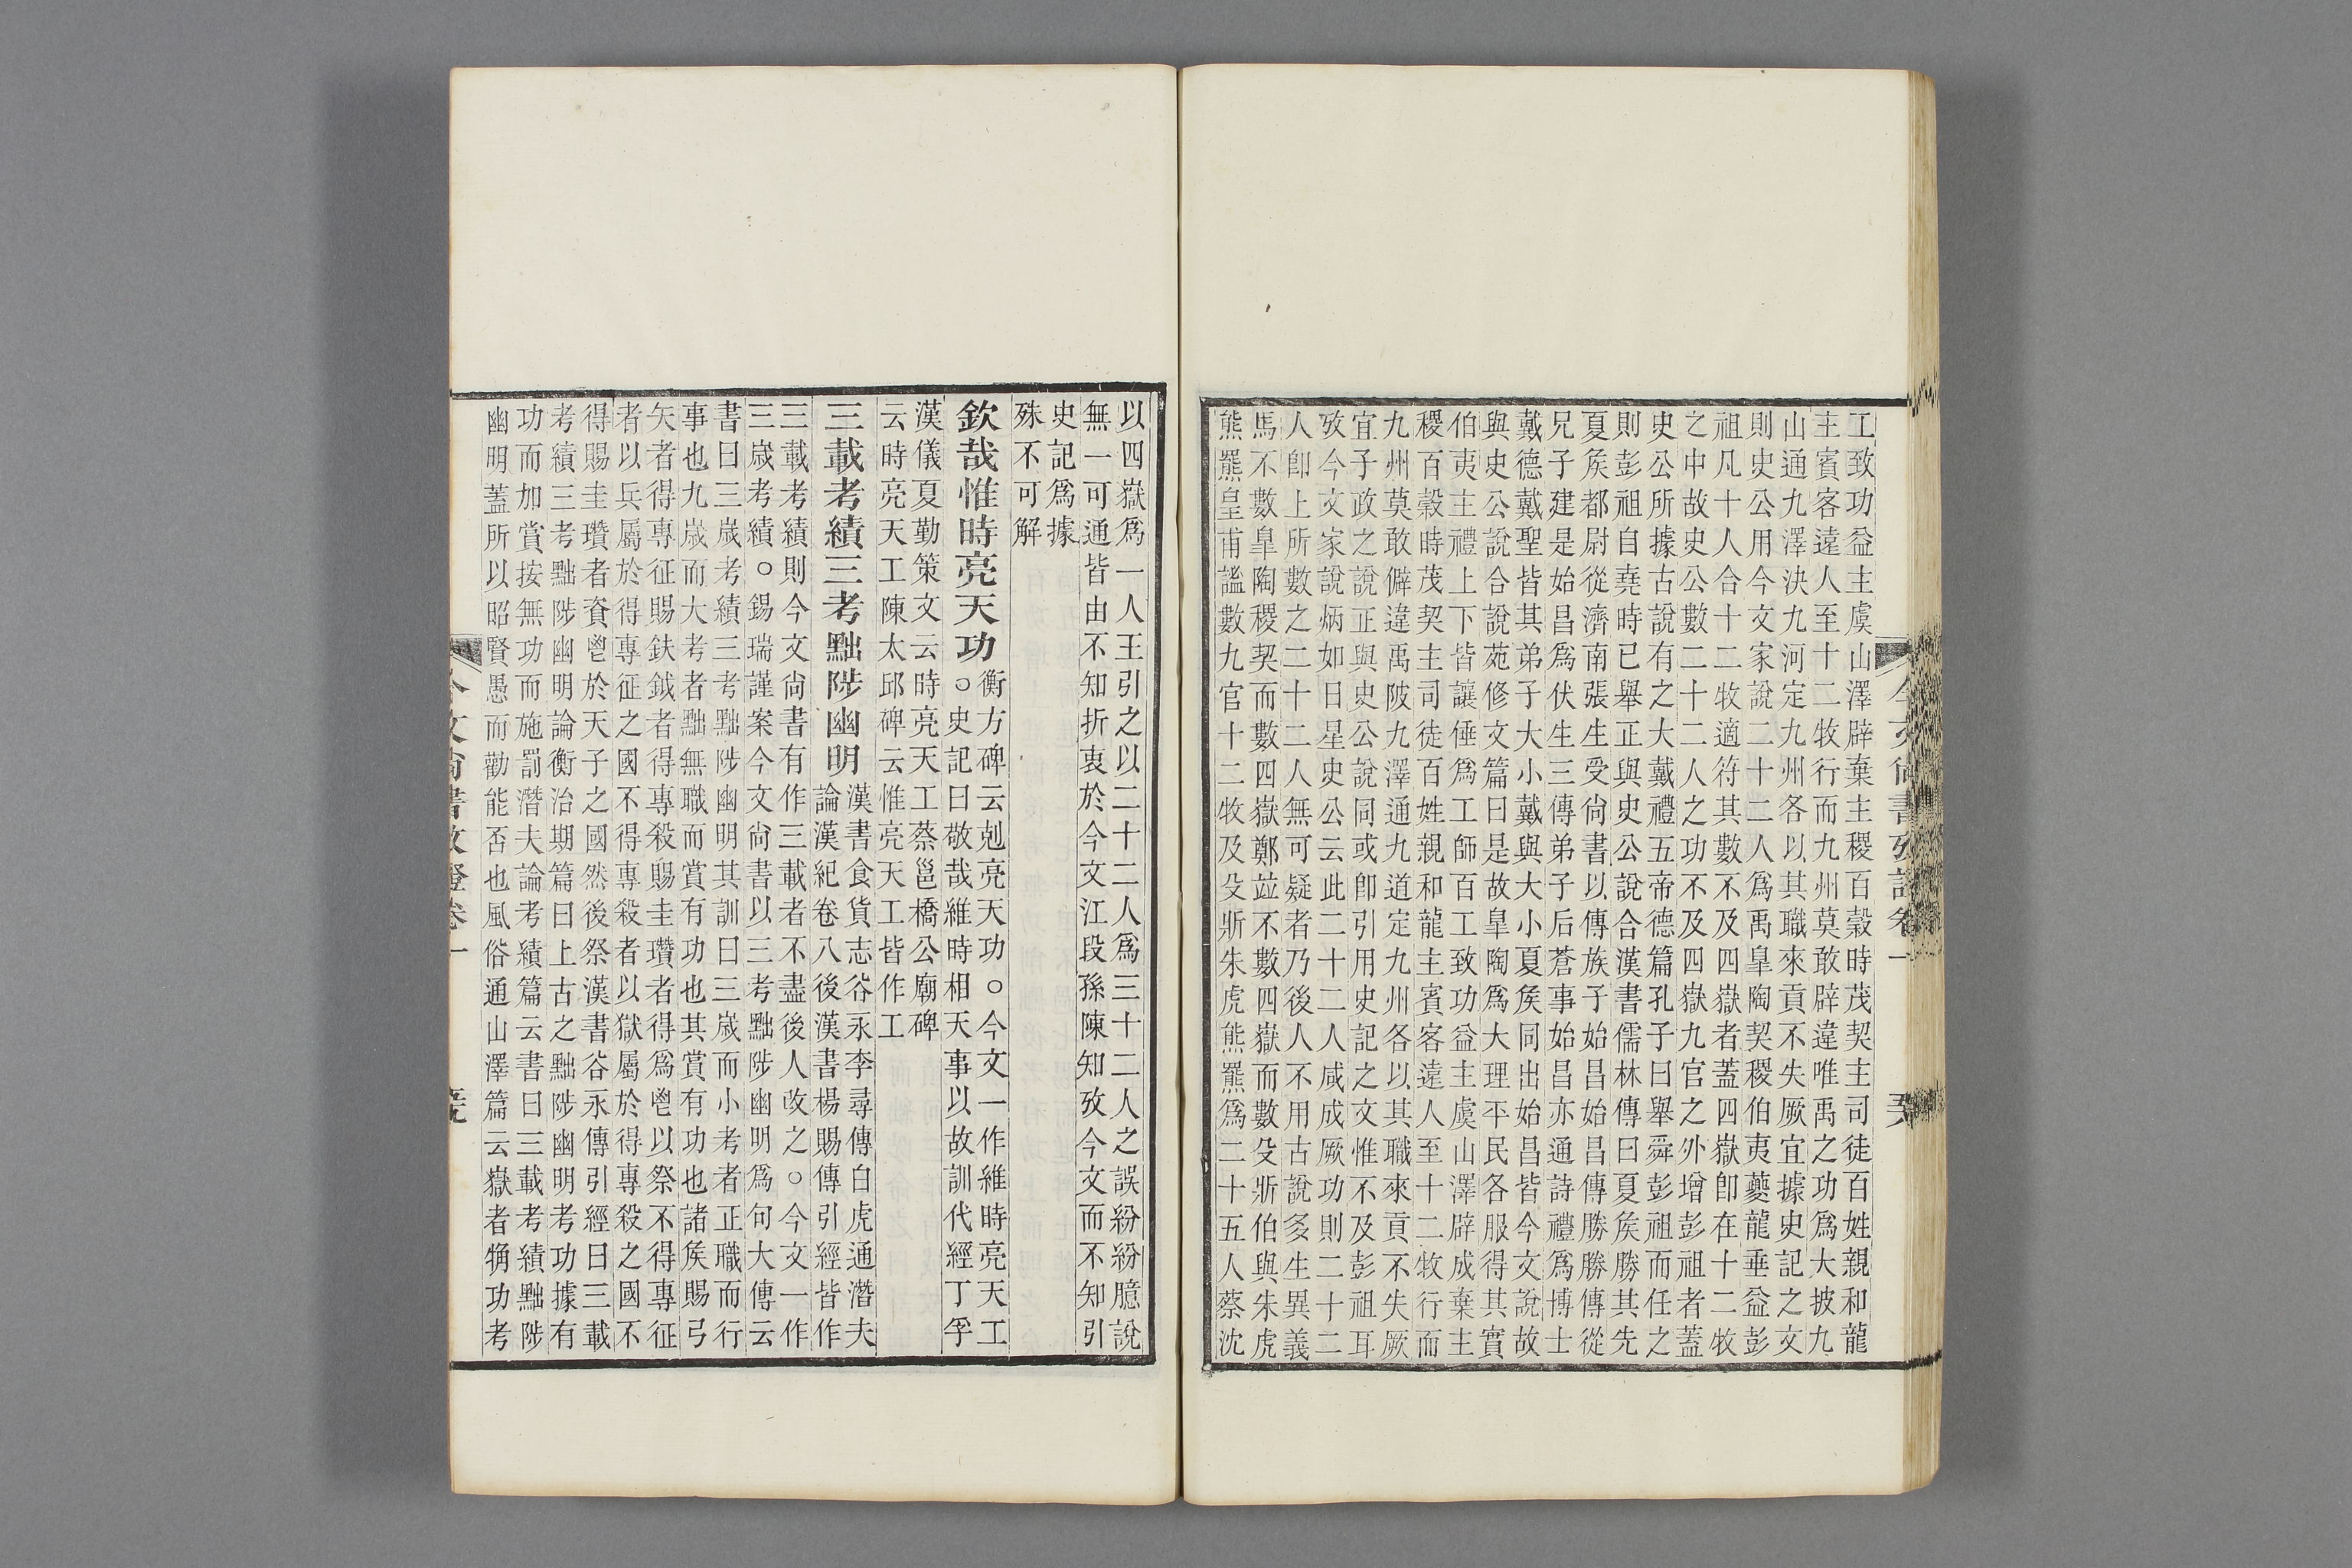 今文尙書攷證卷一
工致功益主虞山澤辟棄主稷百穀時茂契主司徒百姓親和龍
主賓客遠人至十二牧行而九州莫敢辟違唯禹之功爲大披九
山通九澤決九河定九州各以其職來貢不失厥宜據史記之文
則史公用今文家說二十二人爲禹皐陶契稷伯夷夔龍垂益彭
祖凡十人合十二牧適符其數不及四嶽者蓋四嶽卽在十二牧
之中故史公數二十二人之功不及四嶽九官之外增彭祖者蓋
史公所據古說有之大戴禮五帝德篇孔子曰舉舜彭祖而任之
則彭祖自堯時已舉正與史公說合漢書儒林傳曰夏矦勝其先
夏矦都尉從濟南張生受尙書以傳族子始昌始昌傳勝勝傳從
兄子建是始昌爲伏生三傳弟子后蒼事始昌亦通詩禮爲博士
戴德戴聖皆其弟子大小戴與大小夏矦同出始昌皆今文說故
與史公說合說苑修文篇曰是故皐陶爲大理平民各服得其實
伯夷主禮上下皆讓倕爲工師百工致功益主虞山澤辟成棄主
稷百穀時茂契主司徒百姓親和龍主賓客遠人至十二牧行而
九州莫敢僻違禹陂九澤通九道定九州各以其職來貢不失厥
宜子政之說正與史公說同或卽引用史記之文惟不及彭祖耳
攷今文家說炳如日星史公云此二十二人咸成厥功則二十二
人卽上所數之二十二人無可疑者乃後人不用古說多生異義
馬不數皐陶稷契而數四嶽鄭竝不數四嶽而數殳斨伯與朱虎
熊羆皇甫謐數九官十二牧及殳斨朱虎熊羆爲二十五人蔡沈
以四嶽爲一人王引之以二十二人爲三十二人之誤紛紛臆說
無一可通皆由不知折衷於今文江段孫陳知攷今文而不知引
史記爲據
殊不可解
欽哉惟時亮天功
衡方碑云剋亮天功○今文一作維時亮天工
○史記曰敬哉維時相天事以故訓代經丁孚
漢儀夏勤策文云時亮天工蔡邕橋公廟碑
云時亮天工陳太邱碑云惟亮天工皆作工
三載考績三考黜陟幽明
漢書食貨志谷永李尋傳白虎通潛夫
論漢紀卷八後漢書楊賜傳引經皆作
三載考績則今文尙書有作三載者不盡後人改之○今文一作
三歲考績○錫瑞謹案今文尙書以三考黜陟幽明爲句大傳云
書曰三歲考績三考黜陟幽明其訓曰三歲而小考者正職而行
事也九歲而大考者黜無職而賞有功也其賞有功也諸矦賜弓
矢者得專征賜鈇鉞者得專殺賜圭瓚者得爲鬯以祭不得專征
者以兵屬於得專征之國不得專殺者以獄屬於得專殺之國不
得賜圭瓚者資鬯於天子之國然後祭漢書谷永傳引經曰三載
考績三考黜陟幽明論衡治期篇曰上古之黜陟幽明考功據有
功而加賞按無功而施罰潛夫論考績篇云書曰三載考績黜陟
幽明蓋所以昭賢愚而勸能否也風俗通山澤篇云嶽者捔功考
今文尙書攷證卷一